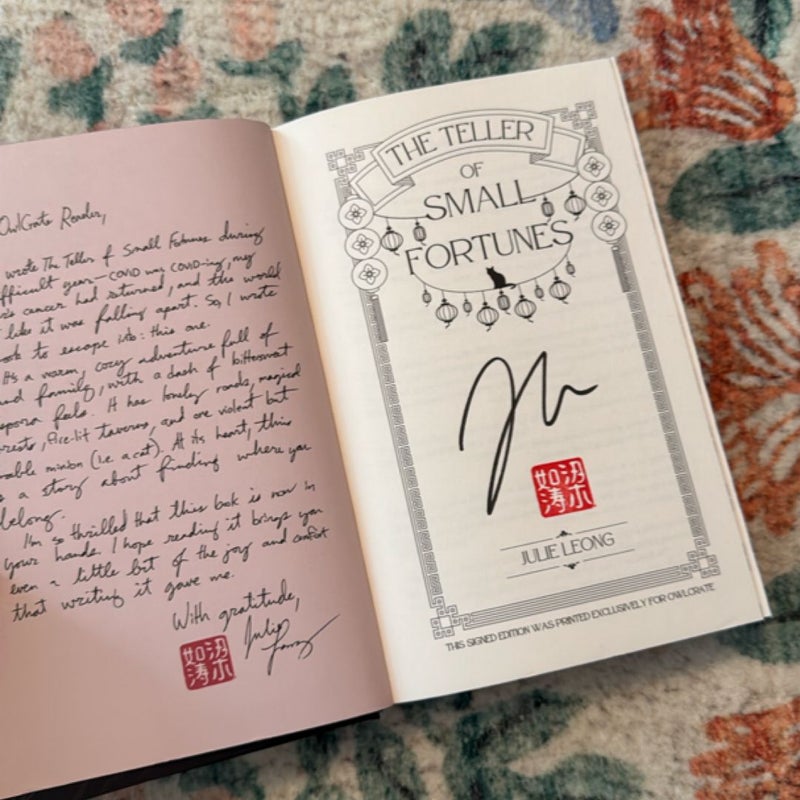 OwlCrate Reader,
wrote The Teller of Small Fortunes during
difficult year—COVID was COVID-ing, my
cancer had returned, and the world
like it was falling apart. So, I wrote
book to escape into: this one.
It's a warm, cozy adventure full of
and family, with a dash of bittersweet
feels. It has lonely roads, magical
forests, fire-lit taverns, and one violent but
adorable minion (i.e. a cat). At its heart, this
is a story about finding where you
belong.
I'm so thrilled that this book is now in
your hands. I hope reading it brings you
even a little bit of the joy and comfort
that writing it gave me.
With gratitude,
Julie Leong
THE TELLER
OF
SMALL
FORTUNES
JULIE LEONG
THIS SIGNED EDITION WAS PRINTED EXCLUSIVELY FOR OWLCRATE